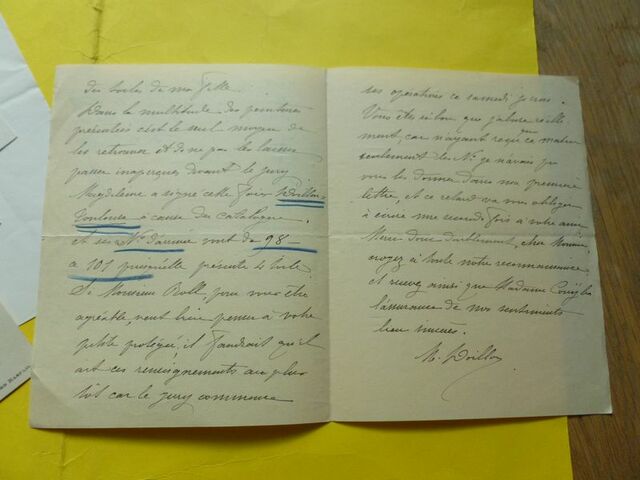 des toiles de ma fille.
Dans la multitude des peintures
présentées c'est le seul moyen de
les retrouver et de ne pas les laisser
passer inaperçues devant le jury
Magdeleine a signé cette fois Doillon-
Toulouse à cause du catalogue.
et ses Nos d'arrivée vont de 98-
à 101 puisqu'elle présente 4 toiles.
Si Monsieur Roll, pour vous être
agréable, veut bien penser à votre
petite protégée, il faudrait qu'il
ait ces renseignements au plus
tôt car le jury commence
ses opérations ce samedi je crois.
Vous êtes si bon que j'abuse réelle
ment, car n'ayant reçu que ce matin
seulement les Nos je n'avais pu
vous les donner dans ma première
lettre, et ce retard va vous obliger
à écrire une seconde fois à votre ami
Merci donc doublement, cher Monsieur,
croyez à toute notre reconnaissance
et recevez ainsi que Madame
l'assurance de nos sentiments
bien
M. Doillon